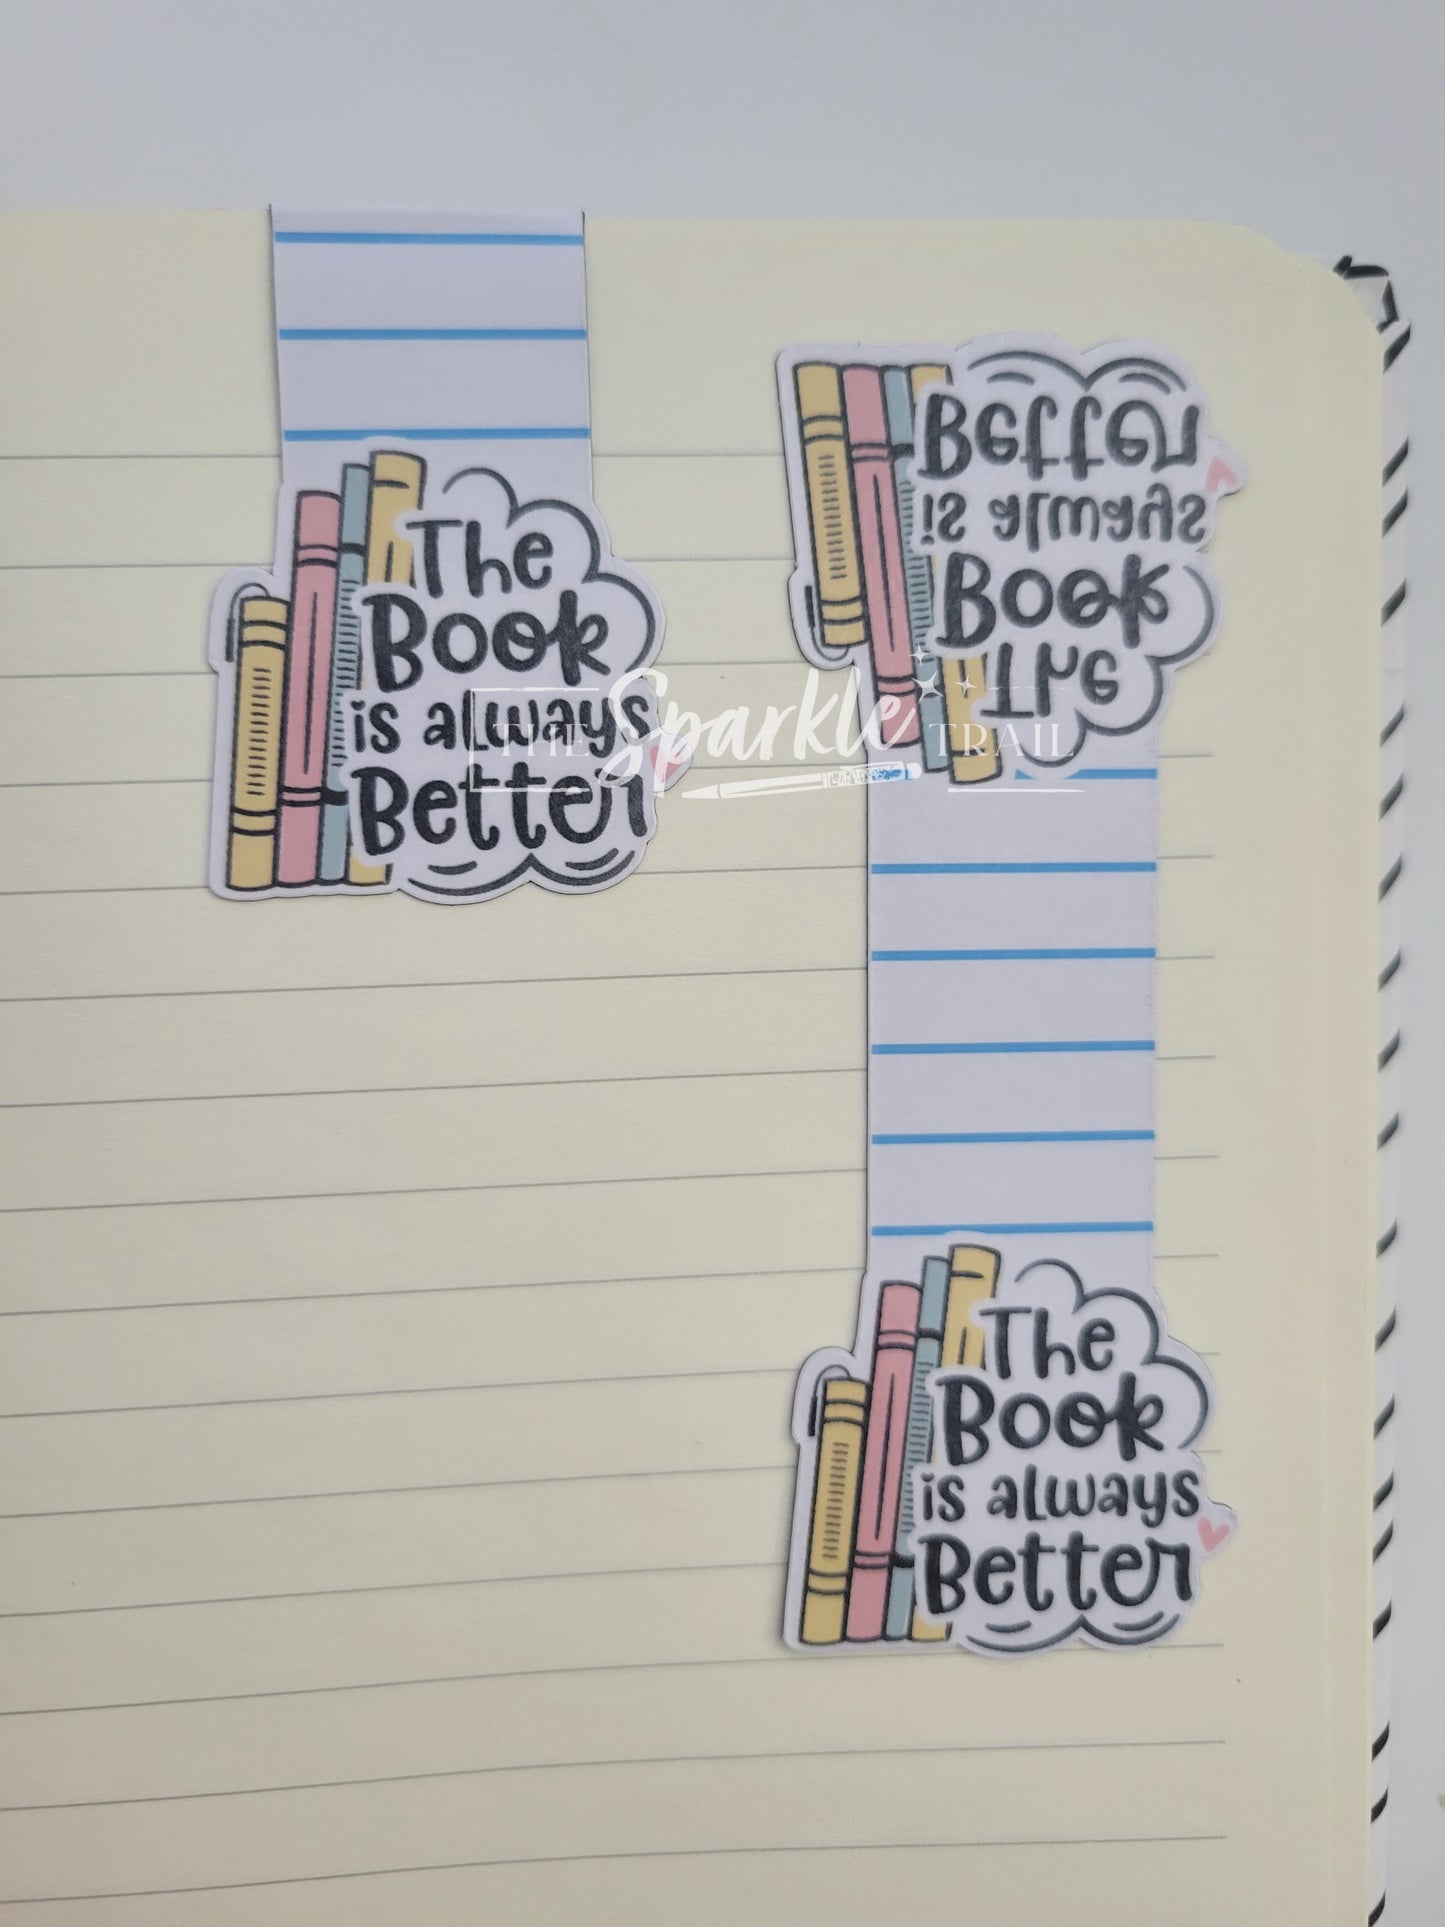 The
Book
is always
Better
Better
is always
Book
The
THE Sparkle TRAIL
The
Book
is always
Better